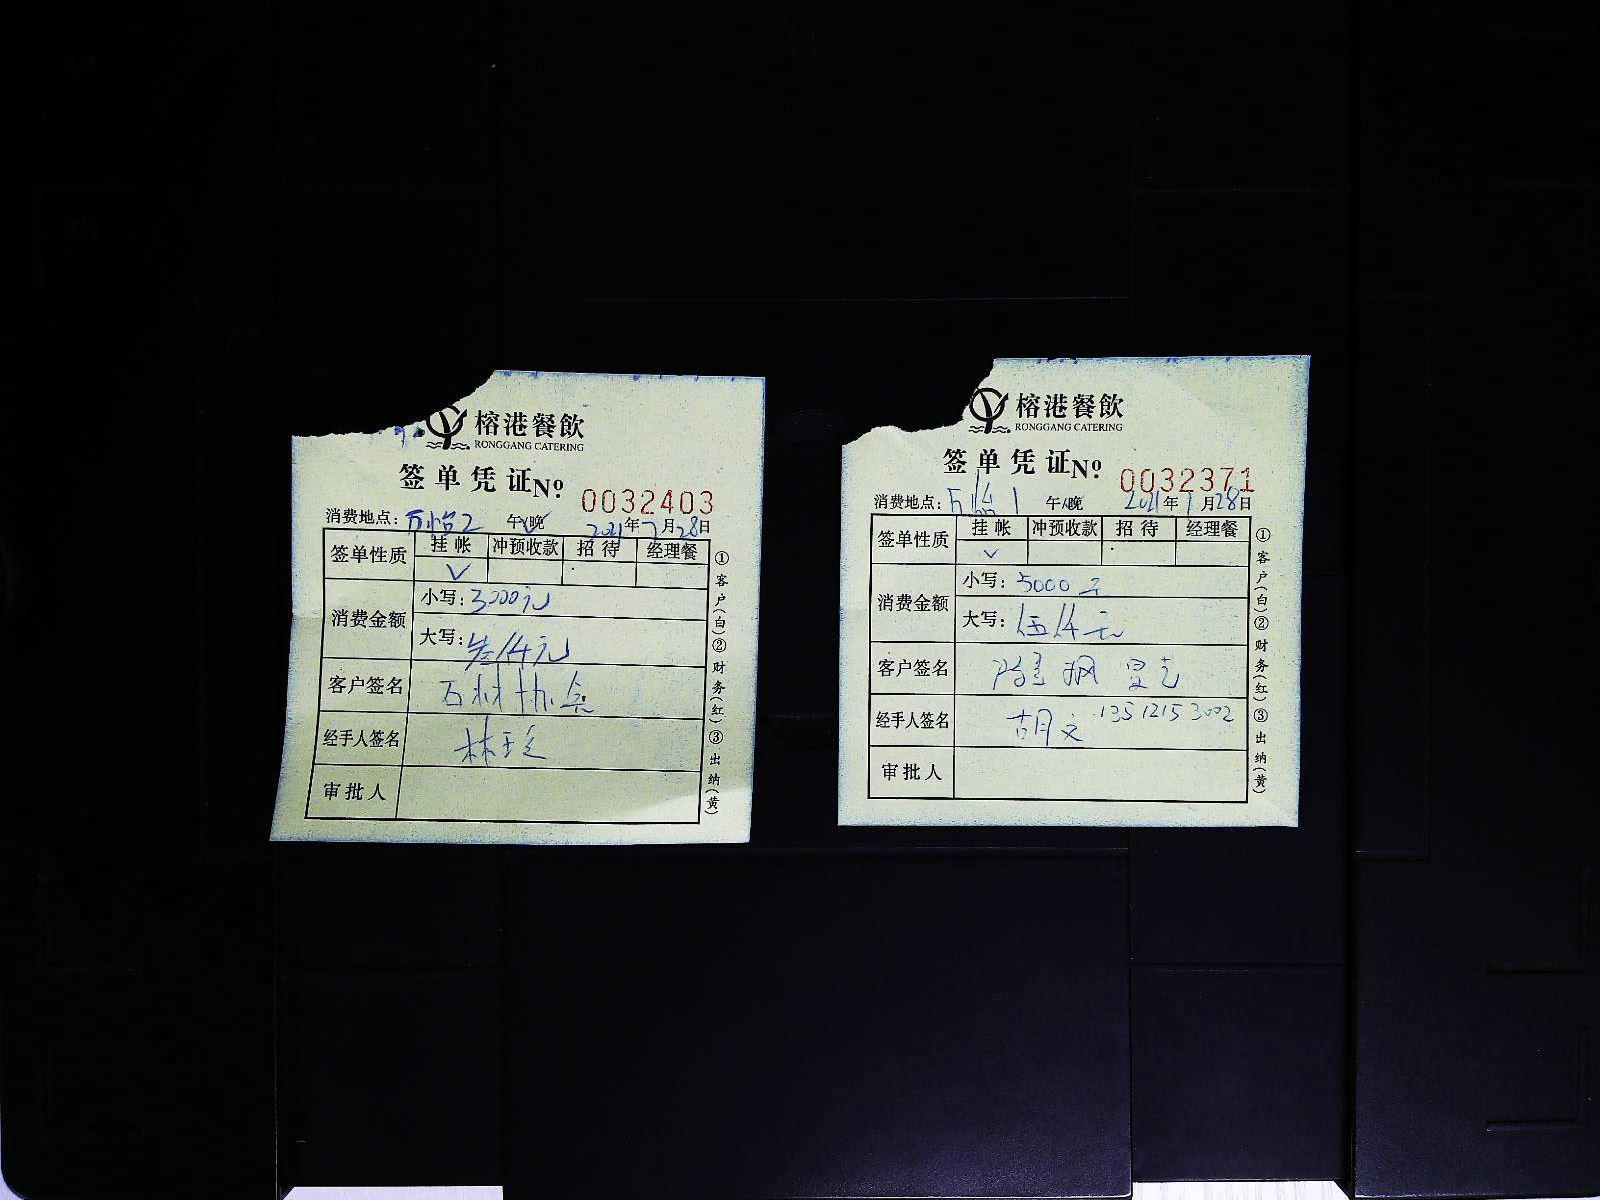 榕港餐飲
RONGGANG CATERING
签单凭证 No 0032403
消费地点: 万怡2 午/晚 2021年7月28日
签单性质 挂帐 冲预收款 招待 经理餐
✓
消费金额 小写: 3000元
大写: 叁仟元
客户签名 石材协会
经手人签名 林珍
审批人
①客户(白)②财务(红)③出纳(黄)
榕港餐飲
RONGGANG CATERING
签单凭证 No 0032371
消费地点: 万怡1 午/晚 2021年7月28日
签单性质 挂帐 冲预收款 招待 经理餐
✓
消费金额 小写: 5000元
大写: 伍仟元
客户签名
经手人签名 胡文 13512153002
审批人
①客户(白)②财务(红)③出纳(黄)